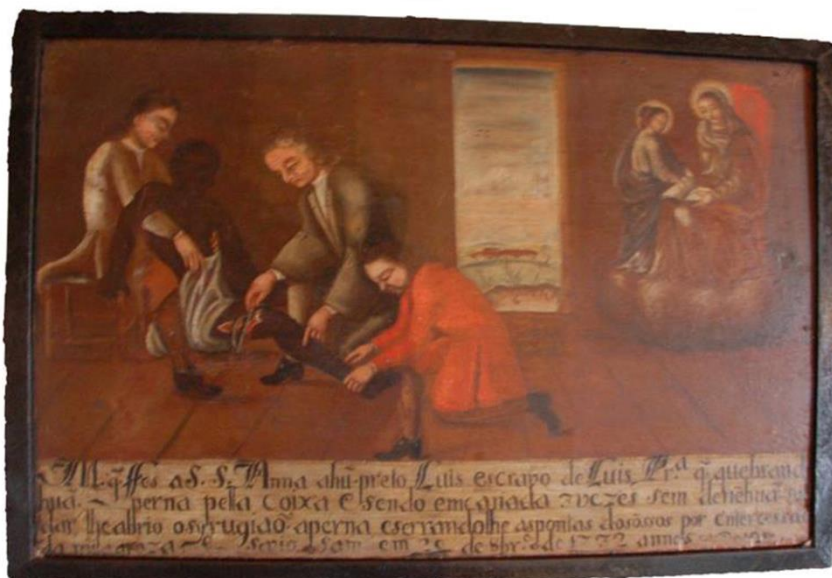 M. q̃ fes a S. S. Anna ahũ preto Luis escravo de Luis Pr.ª q. quebrand
huã perna pella coixa e sendo emcanada 3 vezes sem
dar lhe abrio o syrugião aperna eserrandolhe aspontas dosòssos por enterces
em de 8br.º de 1732 annos